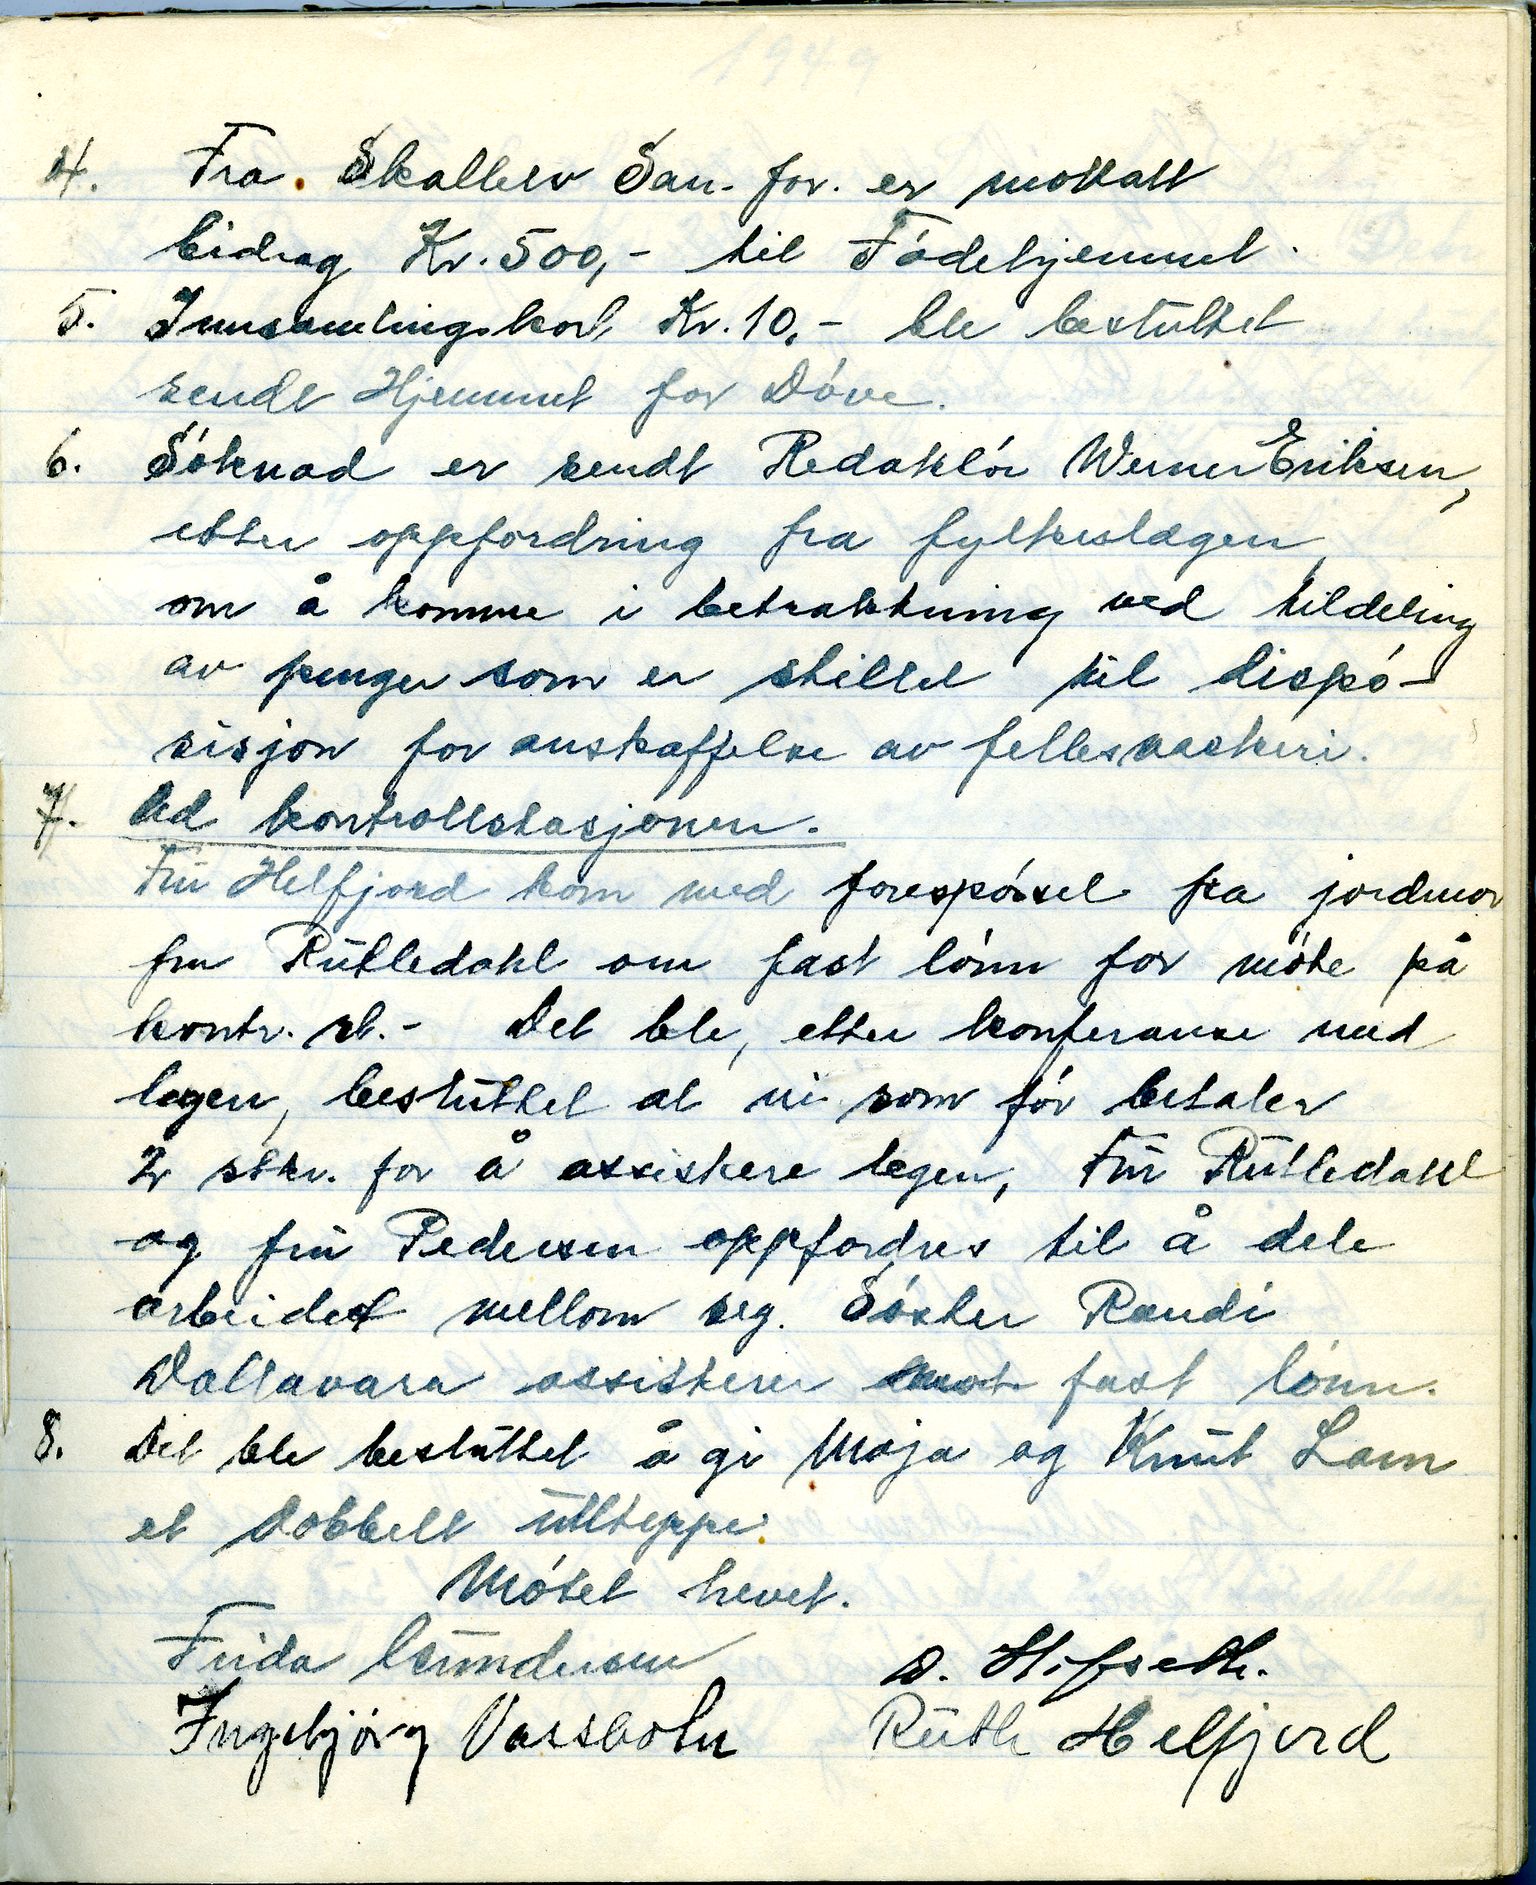 1949
4. Fra Skallelv San. for. er mottatt
bidrag Kr. 500,- til Födehjemmet.
5. Innsamlingskort Kr. 10,- ble besluttet
sendt Hjemmet for Döve.
6. Söknad er sendt Redaktör Werner Eriksen,
etter oppfordring fra fylkeslægen,
om å komme i betraktning ved tildeling
av penger som er stillet til dispo-
sisjon for anskaffelse av fellesvaskeri.
7. Ad kontrollstasjonen.
Fru Helfjord kom med forespörsel fra jordmor
fru Rutledahl om fast lönn for möte på
kontr. st. - Det ble, etter konferanse med
legen, besluttet at vi som för betaler
2 stkr. for å assistere legen, Fru Rutledahl
og fru Pedersen oppfordres til å dele
arbeidet mellom seg. Söster Randi
Dallavara assisterer fast lönn.
8. Det ble besluttet å gi Maja og Knut Lam
et dobbelt ullteppe.
Mötet hevet.
Frida
D. Hifseth.
Ingebjörg Vassbotn
Ruth Helfjord